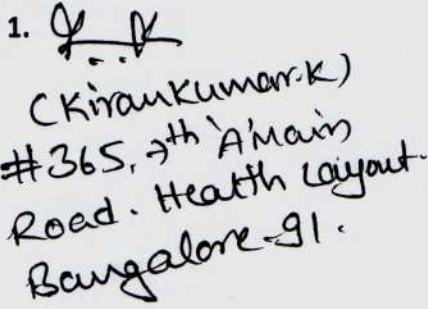 1.
(Kirankumar.K)
#365, 7th 'A' Main
Road. Health Layout.
Bangalore-91.